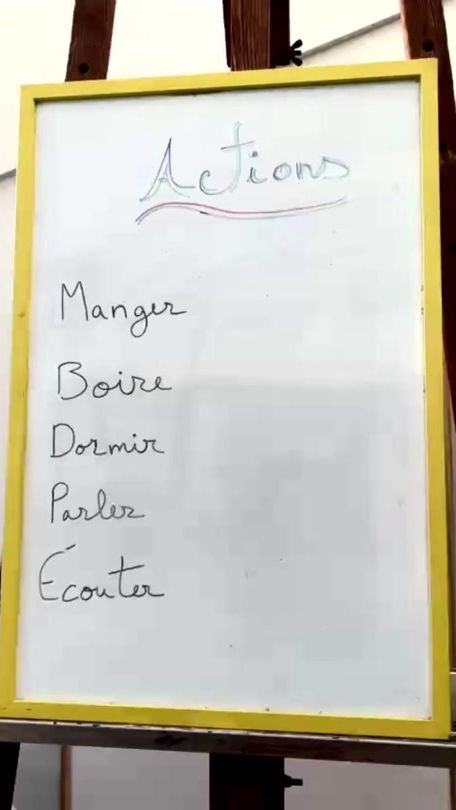 Actions
Manger
Boire
Dormir
Parler
Écouter